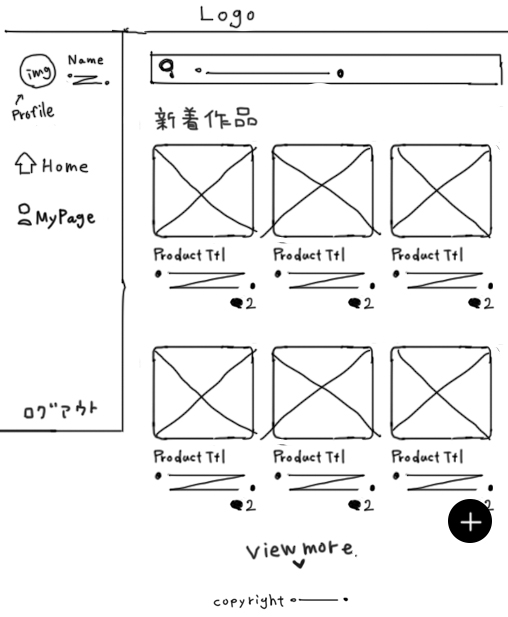 Logo
img
Name
Profile
Home
MyPage
ログアウト
新着作品
Product Ttl
Product Ttl
Product Ttl
2
2
2
Product Ttl
Product Ttl
Product Ttl
2
2
2
+
View more.
copyright